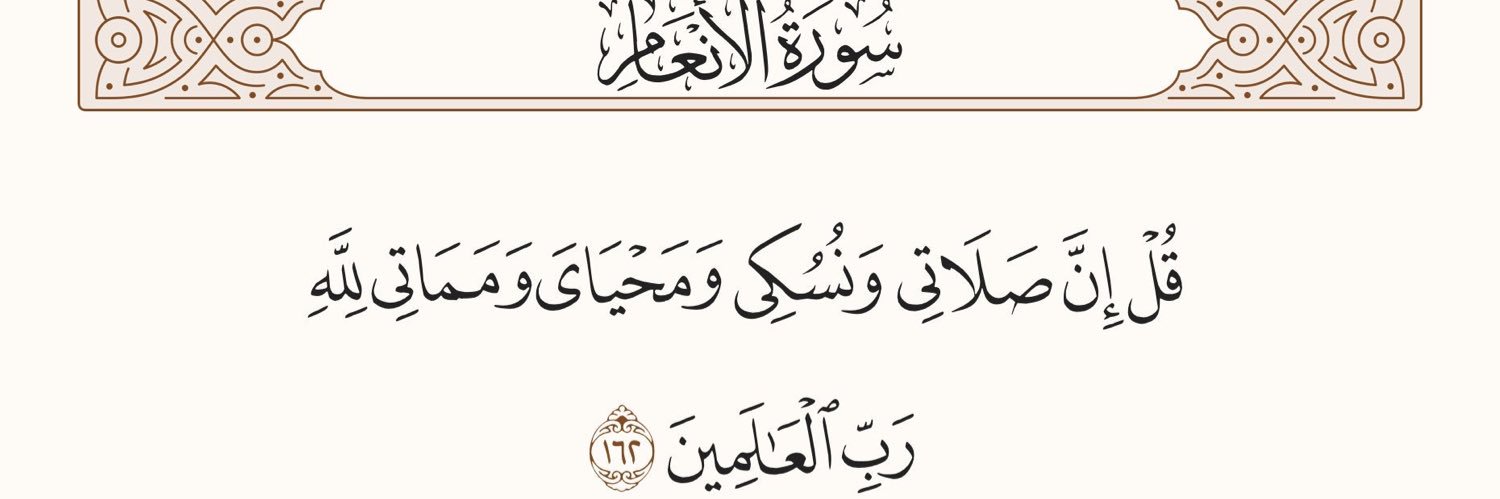 سُورَةُ الأَنْعَامِ
قُلْ إِنَّ صَلَاتِى وَنُسُكِى وَمَحْيَاىَ وَمَمَاتِى لِلَّهِ
رَبِّ ٱلْعَـٰلَمِينَ ١٦٢